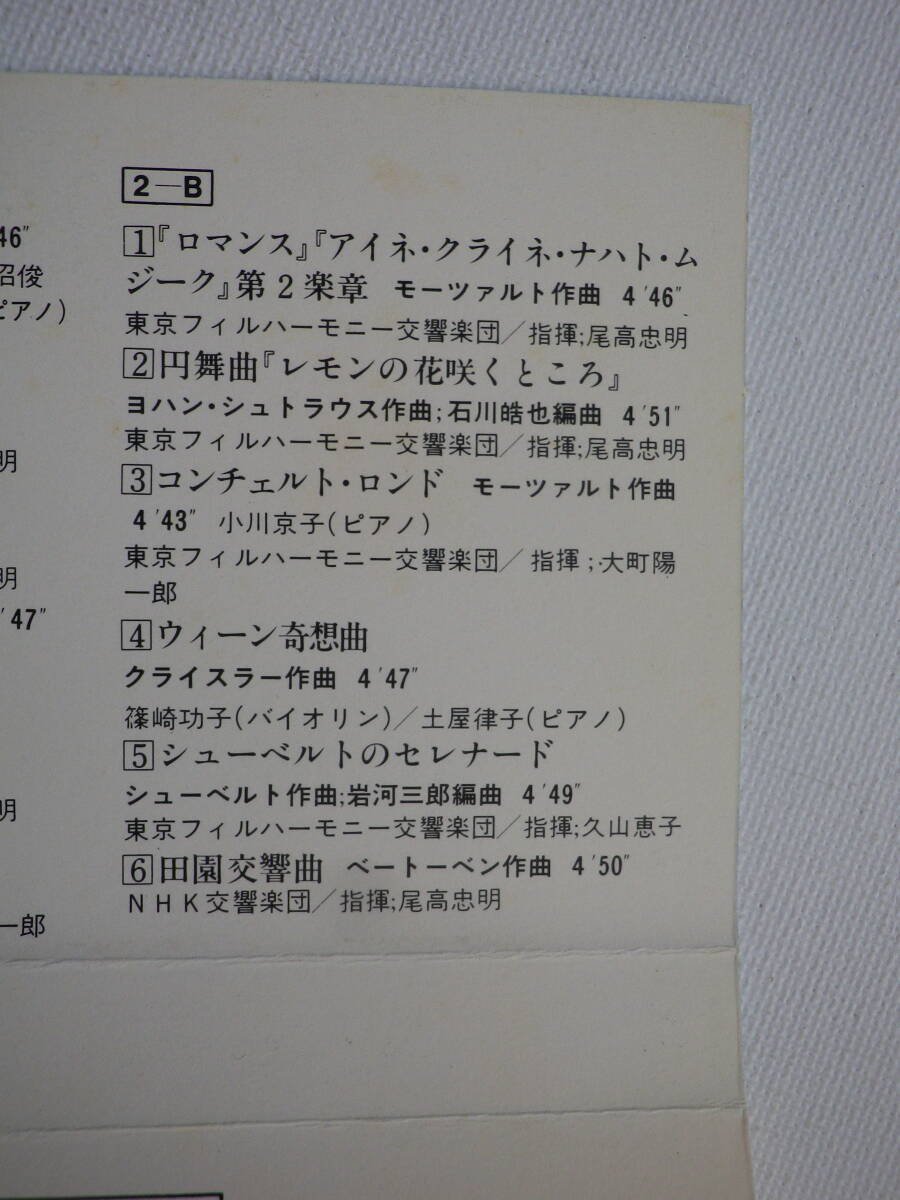 46"
沼俊
ピアノ)
明
明
'47"
明
一郎
2—B
1『ロマンス』『アイネ・クライネ・ナハト・ム
ジーク』第2楽章 モーツァルト作曲 4'46"
東京フィルハーモニー交響楽団／指揮;尾高忠明
2円舞曲『レモンの花咲くところ』
ヨハン・シュトラウス作曲;石川皓也編曲 4'51"
東京フィルハーモニー交響楽団／指揮;尾高忠明
3コンチェルト・ロンド モーツァルト作曲
4'43" 小川京子(ピアノ)
東京フィルハーモニー交響楽団／指揮;大町陽
一郎
4ウィーン奇想曲
クライスラー作曲 4'47"
篠崎功子(バイオリン)／土屋律子(ピアノ)
5シューベルトのセレナード
シューベルト作曲;岩河三郎編曲 4'49"
東京フィルハーモニー交響楽団／指揮;久山恵子
6田園交響曲 ベートーベン作曲 4'50"
NHK交響楽団／指揮;尾高忠明